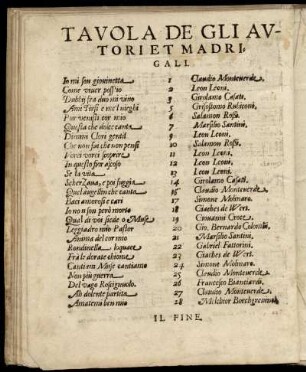 TAVOLA DE GLI AV-
TORI ET MADRI,
GALI.
Io mi son giouinetta 1 Claudio Monteverde.
Come viuer poss'io 2 Leon Leoni.
Dubbij fra duo mi viuo 3 Girolamo Casati.
Ami Tirsi e me l nieghi 5 Grisostomo Rubiconi.
Pur venisti cor mio 6 Salamon Rossi.
Questa che dolce canta 7 Marsilio Santini.
Dimmi Clori gentil 9 Leon Leoni.
Che non fai che non pensi 10 Salamon Rossi.
11 Leon Leoni.
In questo 12 Leon Leoni.
Se la vita 13 Leon Leoni.
Scherzaua, e poi fuggia 14 Girolamo Casati.
Quel augellin che canta 15 Claudio Monteverde.
Baci amorosi e cari 17 Simone Molinaro.
Io non son però morto 18 Giaches de Wert.
Qual di voi sacde o Muse 19 Giouanni Croce.
Leggiadro mio Pastor 20 Gio. Bernardo Colombi.
Anima del cor mio 21 Marsilio Santini.
Rondinella loquace 22 Gabriel Fattorini.
Fra le dorate chiome 23 Giaches de Wert.
Cantiam Muse cantiamo 24 Simone Molinaro.
Non più guerra 25 Claudio Monteverde.
Del vago Rossignuolo. 26 Francesco Bianciardi.
Ah dolente partita 27 Claudio Monteverde.
Amatemi ben mio 28 Melchior Borchgreuinck.
IL FINE.